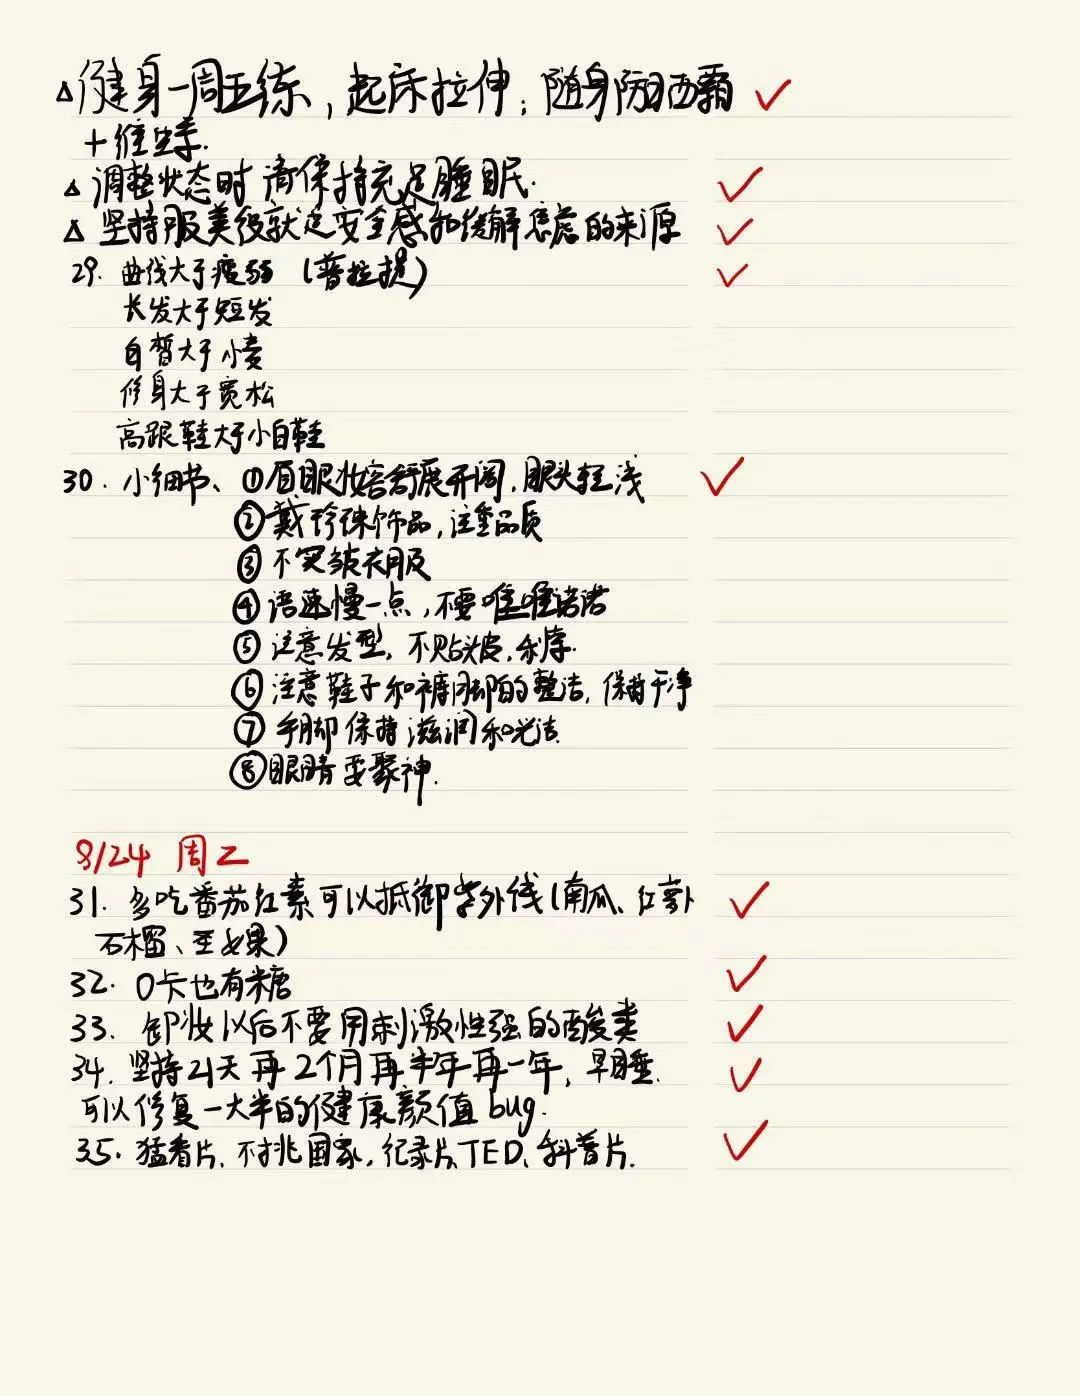 △健身一周五练,起床拉伸,随身防晒霜
+维生素.
△调整状态时 请保持充足睡眠.
△坚持服美役就是安全感和缓解焦虑的来源
29. 曲线大于瘦弱 (普拉提)
长发大于短发
白皙大于小麦
修身大于宽松
高跟鞋大于小白鞋
30. 小细节、①眉眼妆容舒展开阔,眼头轻浅
②戴珍珠饰品,注重品质
③不买皱衣服
④语速慢一点,不要唯唯诺诺
⑤注意发型,不贴头皮,利落.
⑥注意鞋子和裤脚的整洁,保持干净
⑦手脚保持滋润和光洁.
⑧眼睛要聚神.
8/24 周二
31. 多吃番茄红素可以抵御紫外线(南瓜、红萝卜
石榴、圣女果)
32. 0卡也有糖
33. 卸妆以后不要用刺激性强的酸类
34. 坚持21天再2个月再半年再一年,早睡.
可以修复一大半的健康颜值bug.
35. 猛看片,不挑国家,纪录片、TED、科普片.